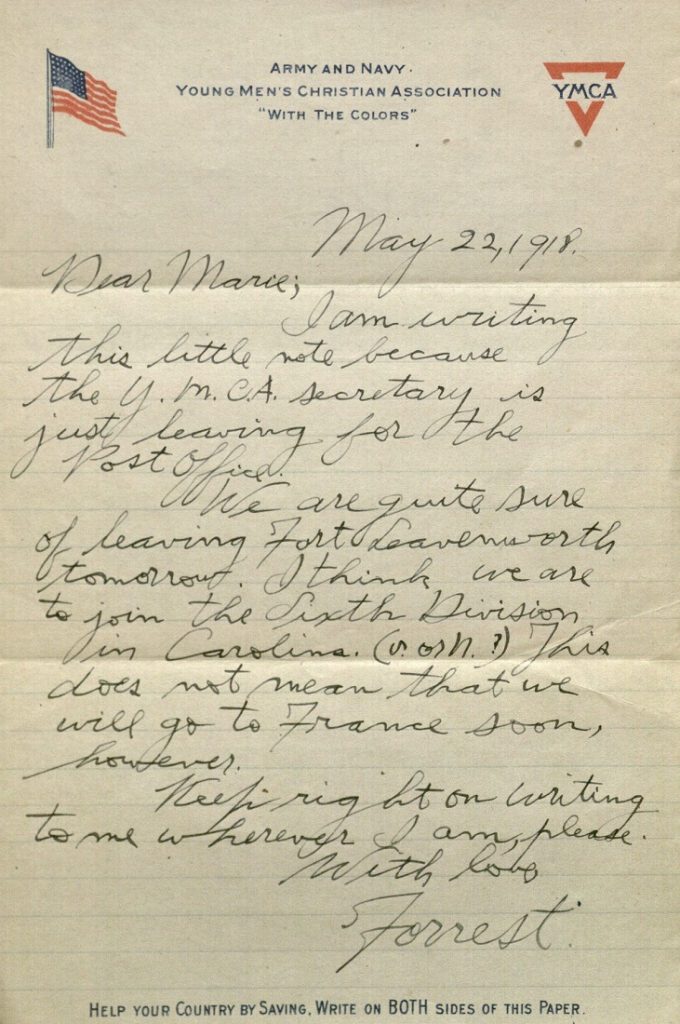 ARMY AND NAVY
YOUNG MEN'S CHRISTIAN ASSOCIATION
"WITH THE COLORS"
YMCA
May 22, 1918.
Dear Marie;
I am writing
this little note because
the Y. M. C. A. secretary is
just leaving for the
Post Office.
We are quite sure
of leaving Fort Leavenworth
tomorrow. I think we are
to join the Sixth Division
in Carolina. (S. or N.?) This
does not mean that we
will go to France soon,
however.
Keep right on writing
to me wherever I am, please.
With love
Forrest.
HELP YOUR COUNTRY BY SAVING, WRITE ON BOTH SIDES OF THIS PAPER.